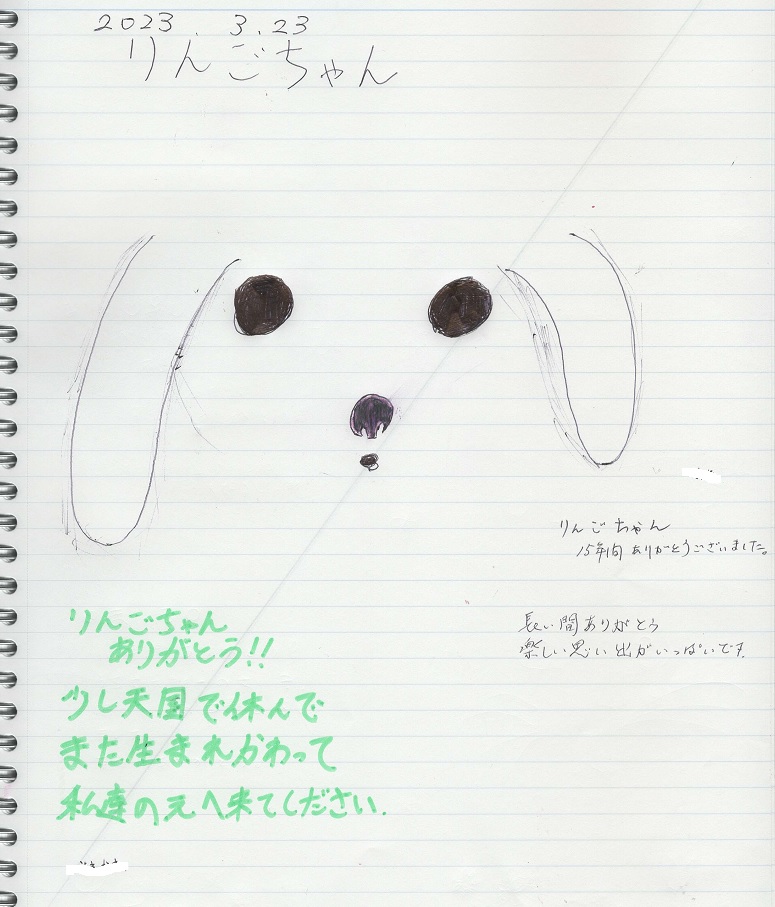 2023. 3.23
りんごちゃん
りんごちゃん
15年間 ありがとうございました。
長い間ありがとう
楽しい思い出がいっぱいです
りんごちゃん
ありがとう!!
少し天国で休んで
また生まれかわって
私達の元へ来てください.